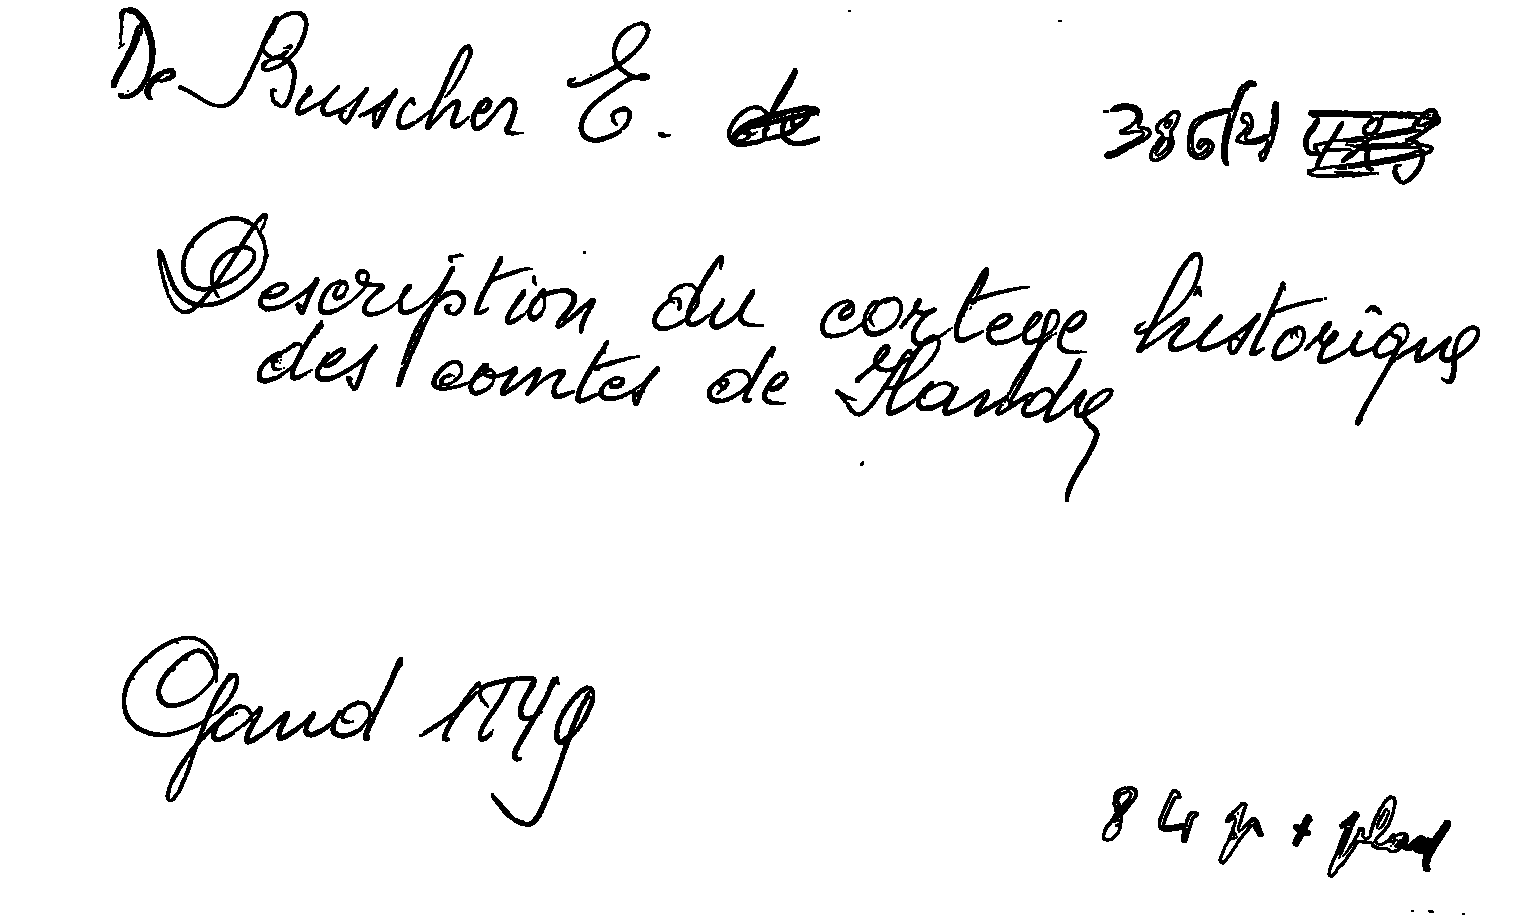 De Busscher E. de 386/21
Description du cortege historique
des comtes de Flandre
Gand 1849
84 p + plan